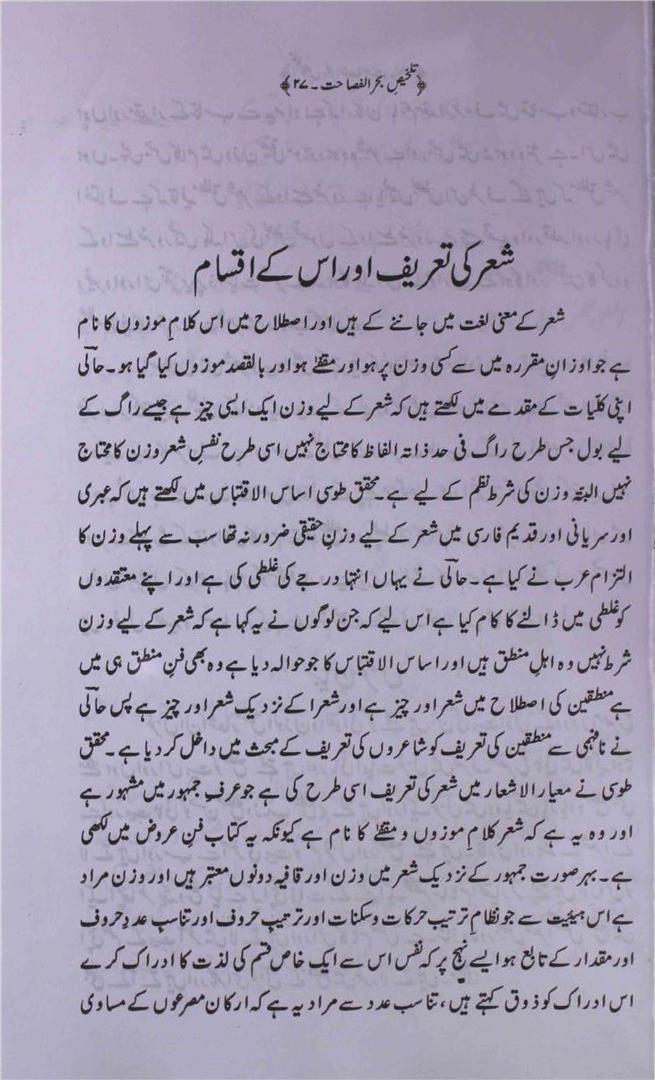 ﴿تلخیصِ بحر الفصاحت۔ ۲۷﴾
شعر کی تعریف اور اس کے اقسام
شعر کے معنی لغت میں جاننے کے ہیں اور اصطلاح میں اس کلامِ موزوں کا نام
ہے جو اوزانِ مقررہ میں سے کسی وزن پر ہو اور مقفیٰ ہو اور بالقصد موزوں کیا گیا ہو۔ حالؔی
اپنی کلّیات کے مقدمے میں لکھتے ہیں کہ شعر کے لیے وزن ایک ایسی چیز ہے جیسے راگ کے
لیے بول جس طرح راگ فی حد ذاتہ الفاظ کا محتاج نہیں اسی طرح نفسِ شعر وزن کا محتاج
نہیں البتہّ وزن کی شرط نظم کے لیے ہے۔ محقق طوسی اساس الاقتباس میں لکھتے ہیں کہ عبری
اور سریانی اور قدیم فارسی میں شعر کے لیے وزنِ حقیقی ضرور نہ تھا سب سے پہلے وزن کا
التزام عرب نے کیا ہے۔ حالؔی نے یہاں انتہا درجے کی غلطی کی ہے اور اپنے معتقدوں
کو غلطی میں ڈالنے کا کام کیا ہے اس لیے کہ جن لوگوں نے یہ کہا ہے کہ شعر کے لیے وزن
شرط نہیں وہ اہلِ منطق ہیں اور اساس الاقتباس کا جو حوالہ دیا ہے وہ بھی فنِ منطق ہی میں
ہے منطقین کی اصطلاح میں شعر اور چیز ہے اور شعرا کے نزدیک شعر اور چیز ہے پس حالؔی
نے نافہمی سے منطقین کی تعریف کو شاعروں کی تعریف کے مبحث میں داخل کر دیا ہے۔ محقق
طوسی نے معیار الاشعار میں شعر کی تعریف اسی طرح کی ہے جو عرفِ جمہور میں مشہور ہے
اور وہ یہ ہے کہ شعر کلامِ موزوں و مقفیٰ کا نام ہے کیونکہ یہ کتاب فنِ عروض میں لکھی
ہے۔ بہر صورت جمہور کے نزدیک شعر میں وزن اور قافیہ دونوں معتبر ہیں اور وزن مراد
ہے اس ہیئیت سے جو نظامِ ترتیب حرکات و سکنات اور ترتیب حروف اور تناسب عددِ حروف
اور مقدار کے تابع ہو ایسے نہج پر کہ نفس اس سے ایک خاص قسم کی لذت کا ادراک کرے
اس ادراک کو ذوق کہتے ہیں، تناسب عدد سے مراد یہ ہے کہ ارکان مصرعوں کے مساوی